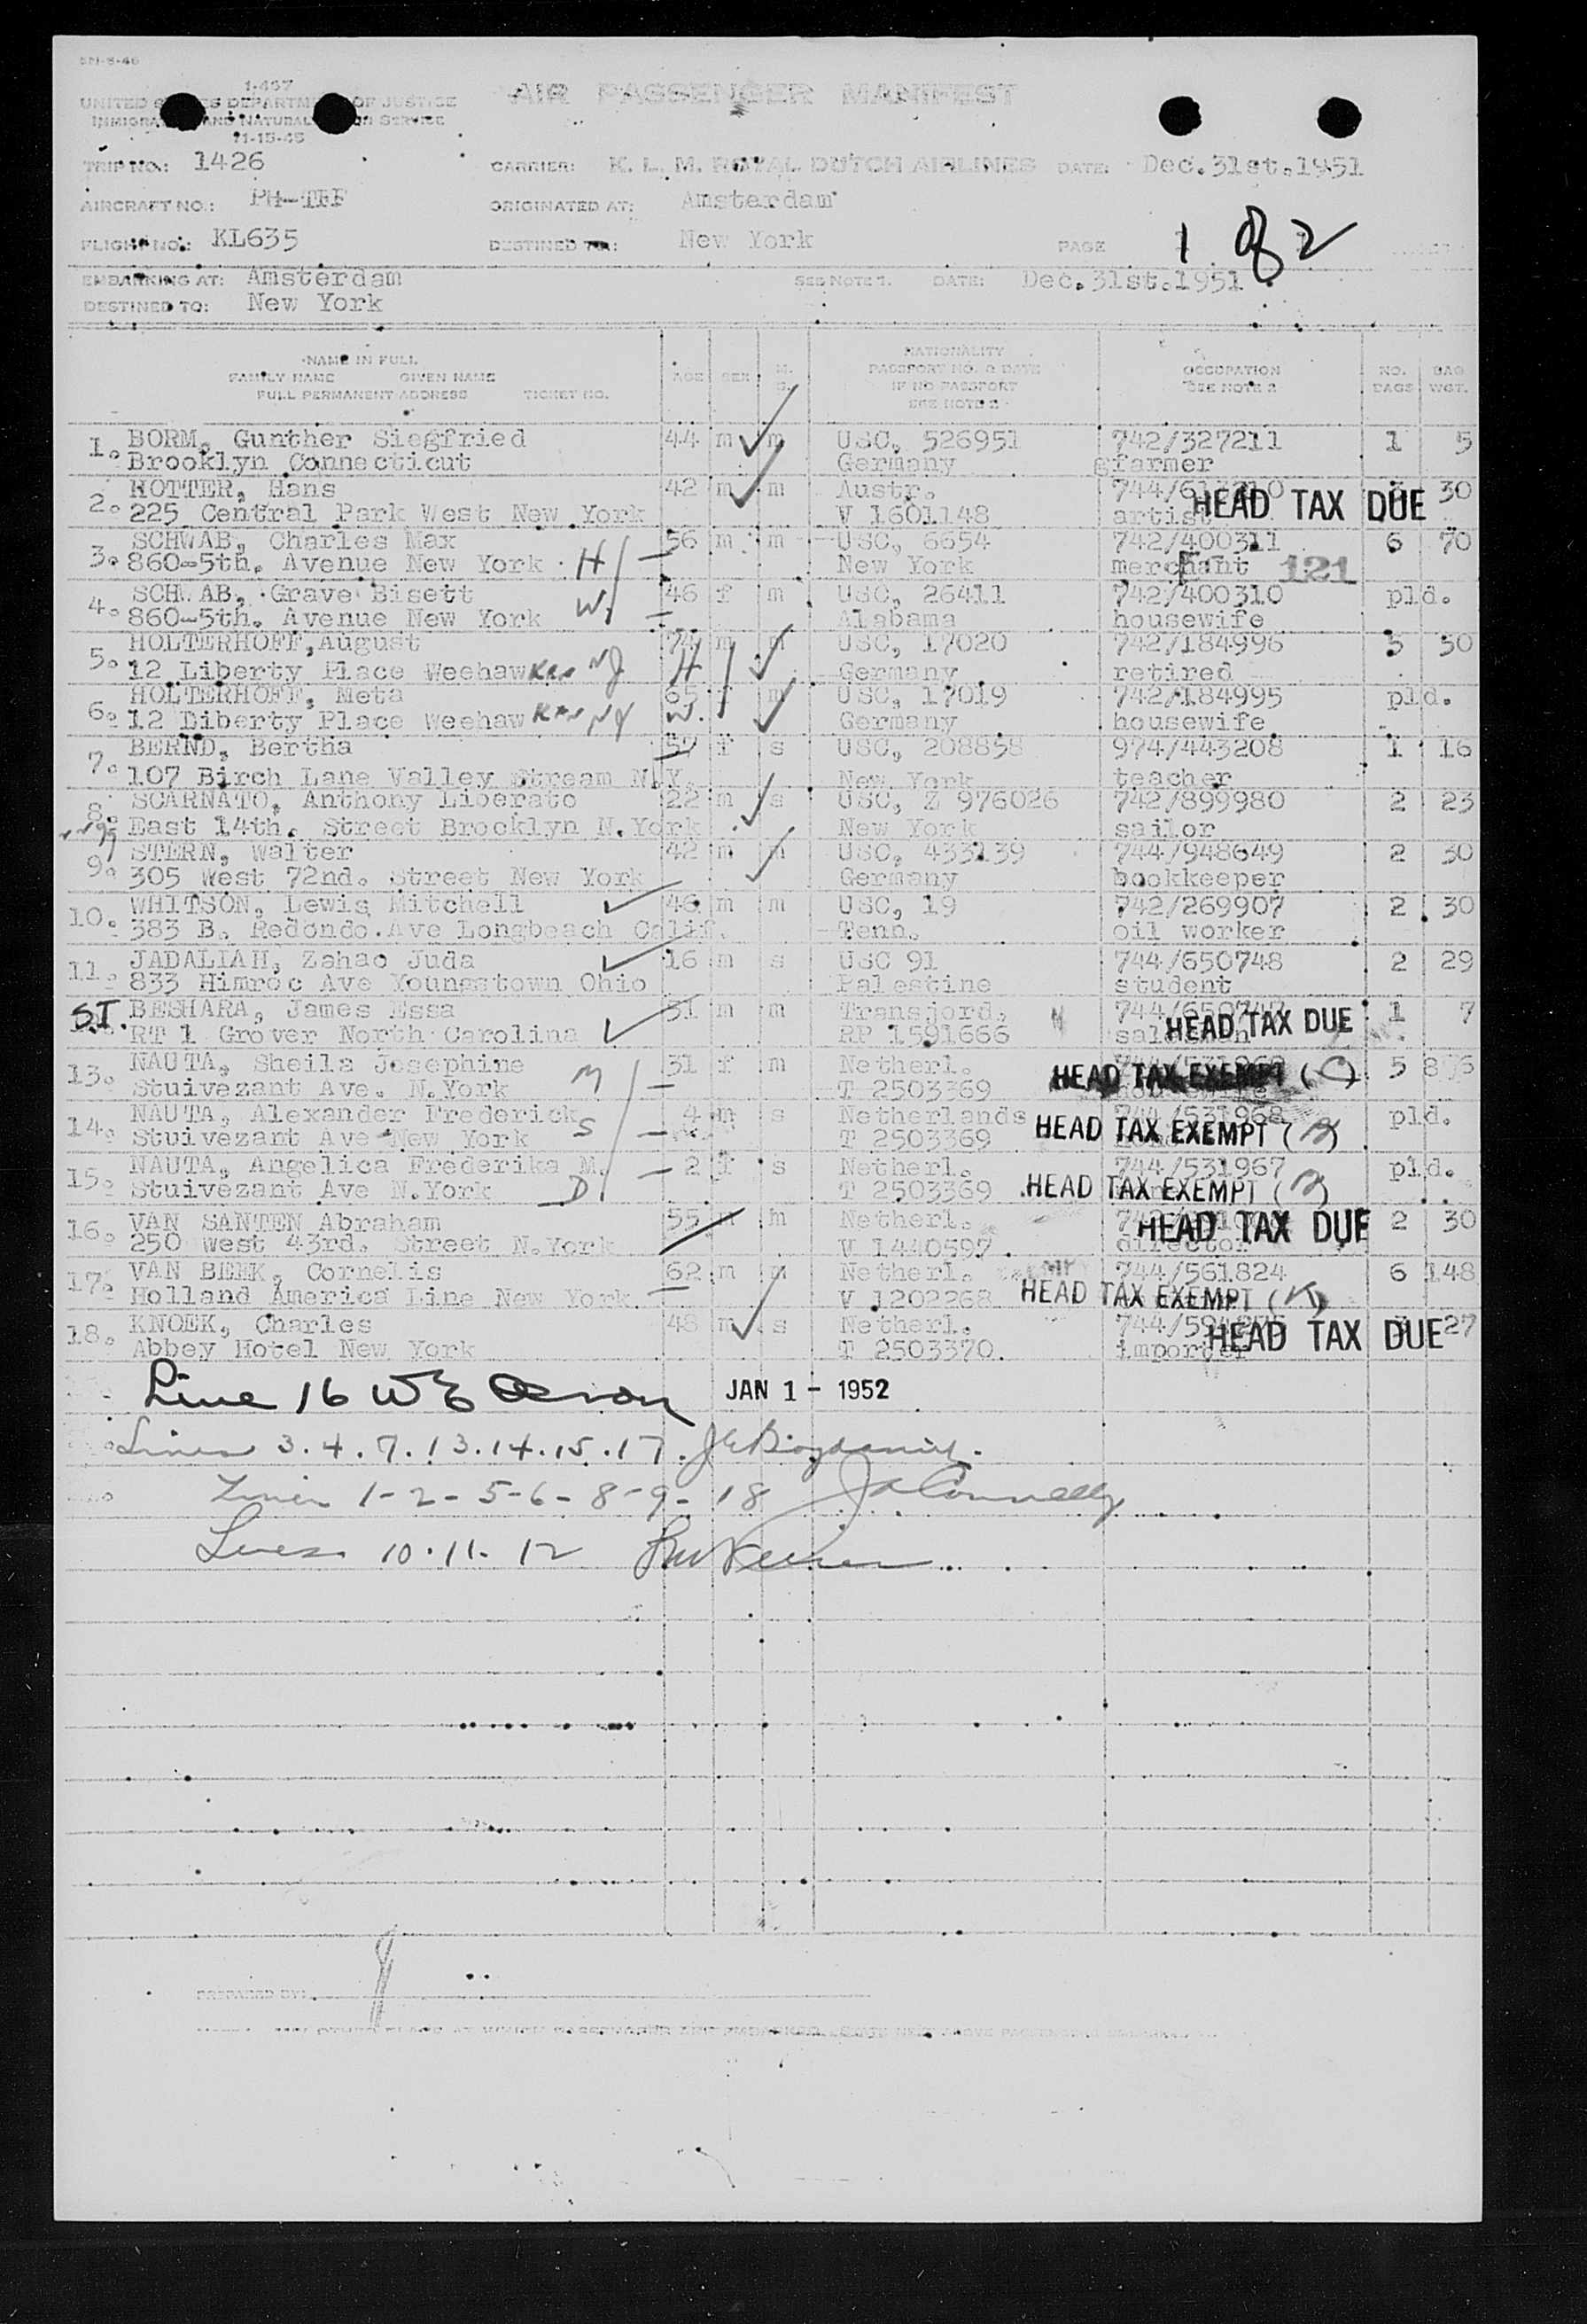 1-467
UNITED STATES DEPARTMENT OF JUSTICE
AIR PASSENGER MANIFEST
IMMIGRATION AND NATURALIZATION SERVICE
11-15-45
TRIP NO.: 1426 CARRIER: K. L. M. ROYAL DUTCH AIRLINES DATE: Dec.31st.1951
AIRCRAFT NO.: PH-TFF ORIGINATED AT: Amsterdam
FLIGHT NO.: KL635 DESTINED TO: New York PAGE 1 of 2
EMBARKING AT: Amsterdam SEE NOTE 1. DATE: Dec.31st.1951
DESTINED TO: New York
NAME IN FULL
FAMILY NAME GIVEN NAME
FULL PERMANENT ADDRESS TICKET NO.
AGE SEX M. S.
NATIONALITY
PASSPORT NO. & DATE
IF NO PASSPORT
SEE NOTE 2
OCCUPATION
SEE NOTE 2
NO. BAGS
BAG WGT.
1. BORM, Gunther Siegfried 44 m m USC, 526951 742/327211 1 5
Brooklyn Connecticut Germany farmer
2. HOTTER, Hans 42 m m Austr. 30
225 Central Park West New York V 1601148 artist HEAD TAX DUE
3. SCHWAB, Charles Max 56 m m USC, 6654 742/400311 6 70
860-5th. Avenue New York H New York merchant 121
4. SCHWAB, Grave Bisett 46 f m USC, 26411 742/400310 pld.
860-5th. Avenue New York W. Alabama housewife
5. HOLTERHOFF, August 74 m m USC, 17020 742/184996 3 50
12 Liberty Place Weehawken NJ H Germany retired
6. HOLTERHOFF, Meta 65 f m USC, 17019 742/184995 pld.
12 Liberty Place Weehawken NJ W. Germany housewife
7. BERND, Bertha 57 f s USC, 208858 974/443208 1 16
107 Birch Lane Valley Stream N.Y. New York teacher
8. SCARNATO, Anthony Liberato 22 m s USC, Z 976026 742/899980 2 23
East 14th. Street Brooklyn N.York New York sailor
9. STERN, Walter 42 m m USC, 433139 744/948649 2 30
305 West 72nd. Street New York Germany bookkeeper
10. WHITSON, Lewis Mitchell 46 m m USC, 19 742/269907 2 30
383 B. Redondo.Ave Longbeach Calif. Tenn. oil worker
11. JADALIAH, Zahao Juda 16 m s USC 91 744/650748 2 29
833 Himroc Ave Youngstown Ohio Palestine student
S.I. BESHARA, James Essa 51 m m Transjord. 744/650747 1 7
RT 1 Grover North Carolina RP 1591666 salesman HEAD TAX DUE
13. NAUTA, Sheila Josephine 31 f m Netherl. 5
Stuivezant Ave. N.York M T 2503369 HEAD TAX EXEMPT (C)
14. NAUTA, Alexander Frederick 4 m s Netherlands 744/531968 pld.
Stuivezant Ave New York S T 2503369 HEAD TAX EXEMPT
15. NAUTA, Angelica Frederika M. 2 f s Netherl. 744/531967 pld.
Stuivezant Ave N.York D T 2503369 HEAD TAX EXEMPT
16. VAN SANTEN Abraham 55 m m Netherl. HEAD TAX DUE 2 30
250 West 43rd. Street N.York V 1440597 director
17. VAN BEEK, Cornelis 62 m m Netherl. 744/561824 6 148
Holland America Line New York V 1202268 HEAD TAX EXEMPT
18. KNOEK, Charles 48 m s Netherl. HEAD TAX DUE 27
Abbey Hotel New York T 2503370 importer
Line 16 JAN 1 - 1952
Lines 3.4.7.13.14.15.17.
Lines 1-2-5-6-8-9-18 Connelly
Lines 10.11.12
PREPARED BY: